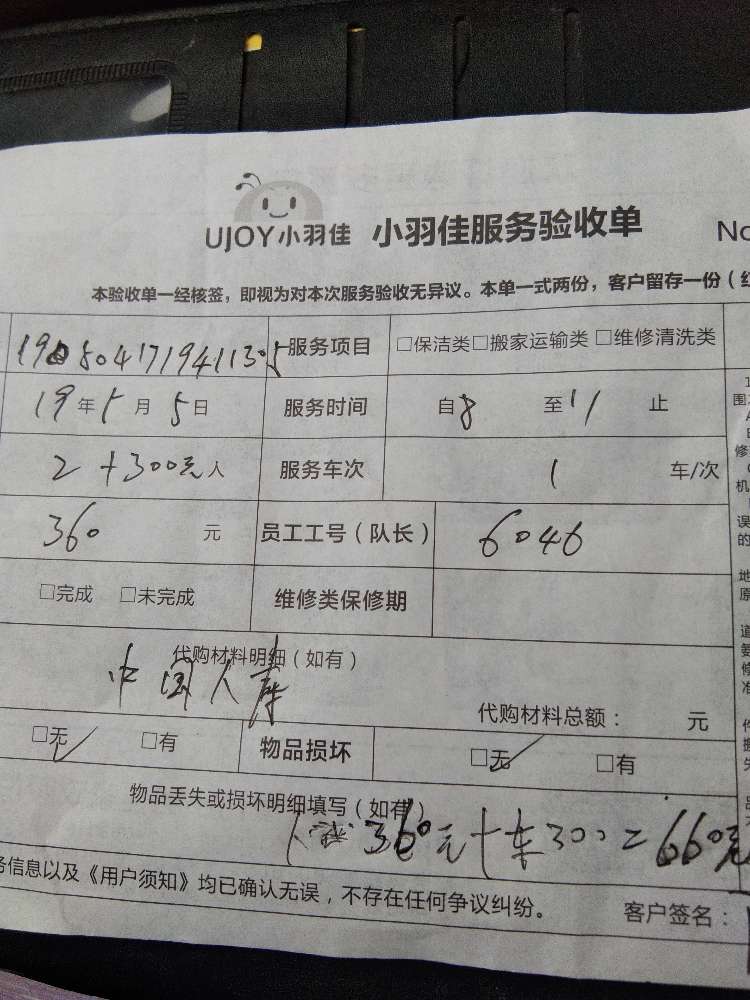 UJOY小羽佳 小羽佳服务验收单 No
本验收单一经核签，即视为对本次服务验收无异议。本单一式两份，客户留存一份（红
服务项目 □保洁类□搬家运输类 □维修清洗类
19年5月5日 服务时间 自8至11止
2+300元人 服务车次 1车/次
360元 员工工号（队长） 6046
□完成 □未完成 维修类保修期
代购材料明细（如有）
中国人寿
代购材料总额： 元
□无 □有 物品损坏 □无 □有
物品丢失或损坏明细填写（如有）
360元+车300=660元
务信息以及《用户须知》均已确认无误，不存在任何争议纠纷。
客户签名：